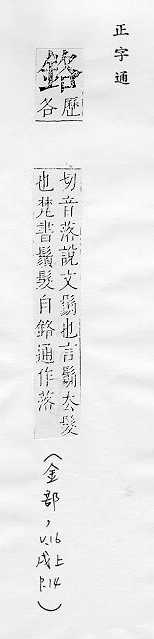 正字通
鉻
歷
各
切音落說文也言去髮
也梵書鬚髮自鉻通作落
(金部, v.16 戌上 P.14)